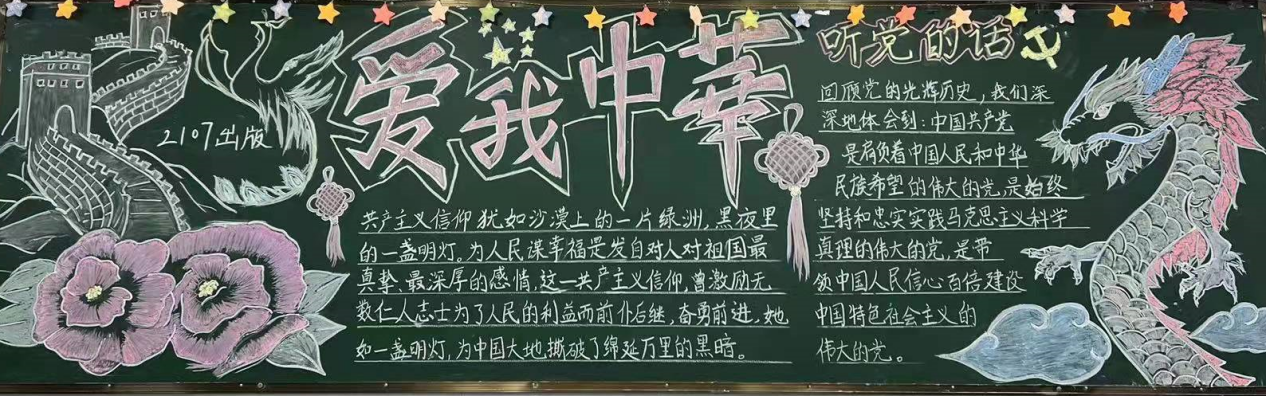 2107出版
爱我中華
共产主义信仰犹如沙漠上的一片绿洲,黑夜里
的一盏明灯。为人民谋幸福是发自对人对祖国最
真挚、最深厚的感情,这一共产主义信仰,曾激励无
数仁人志士为了人民的利益而前仆后继,奋勇前进,她
如一盏明灯,为中国大地撕破了绵延万里的黑暗。
听党的话
回顾党的光辉历史,我们深
深地体会到:中国共产党
是肩负着中国人民和中华
民族希望的伟大的党,是始终
坚持和忠实实践马克思主义科学
真理的伟大的党,是带
领中国人民信心百倍建设
中国特色社会主义的
伟大的党。